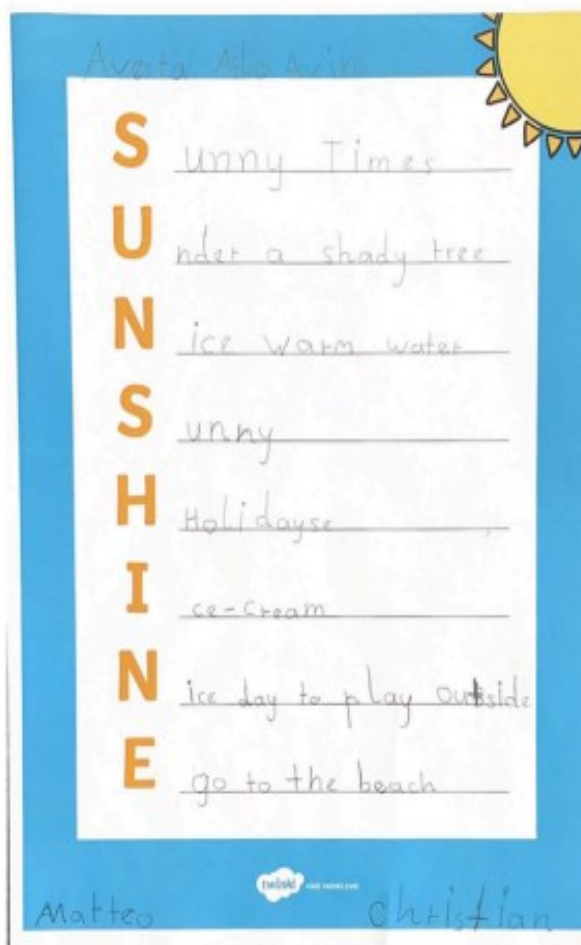 Avesta Allo Avin
Sunny Times
Under a shady tree
Nice warm water
Sunny
HHolidayse
Ice-cream
Nice day to play outside
E go to the beach
twinkl visit twinkl.com
Matteo Christian